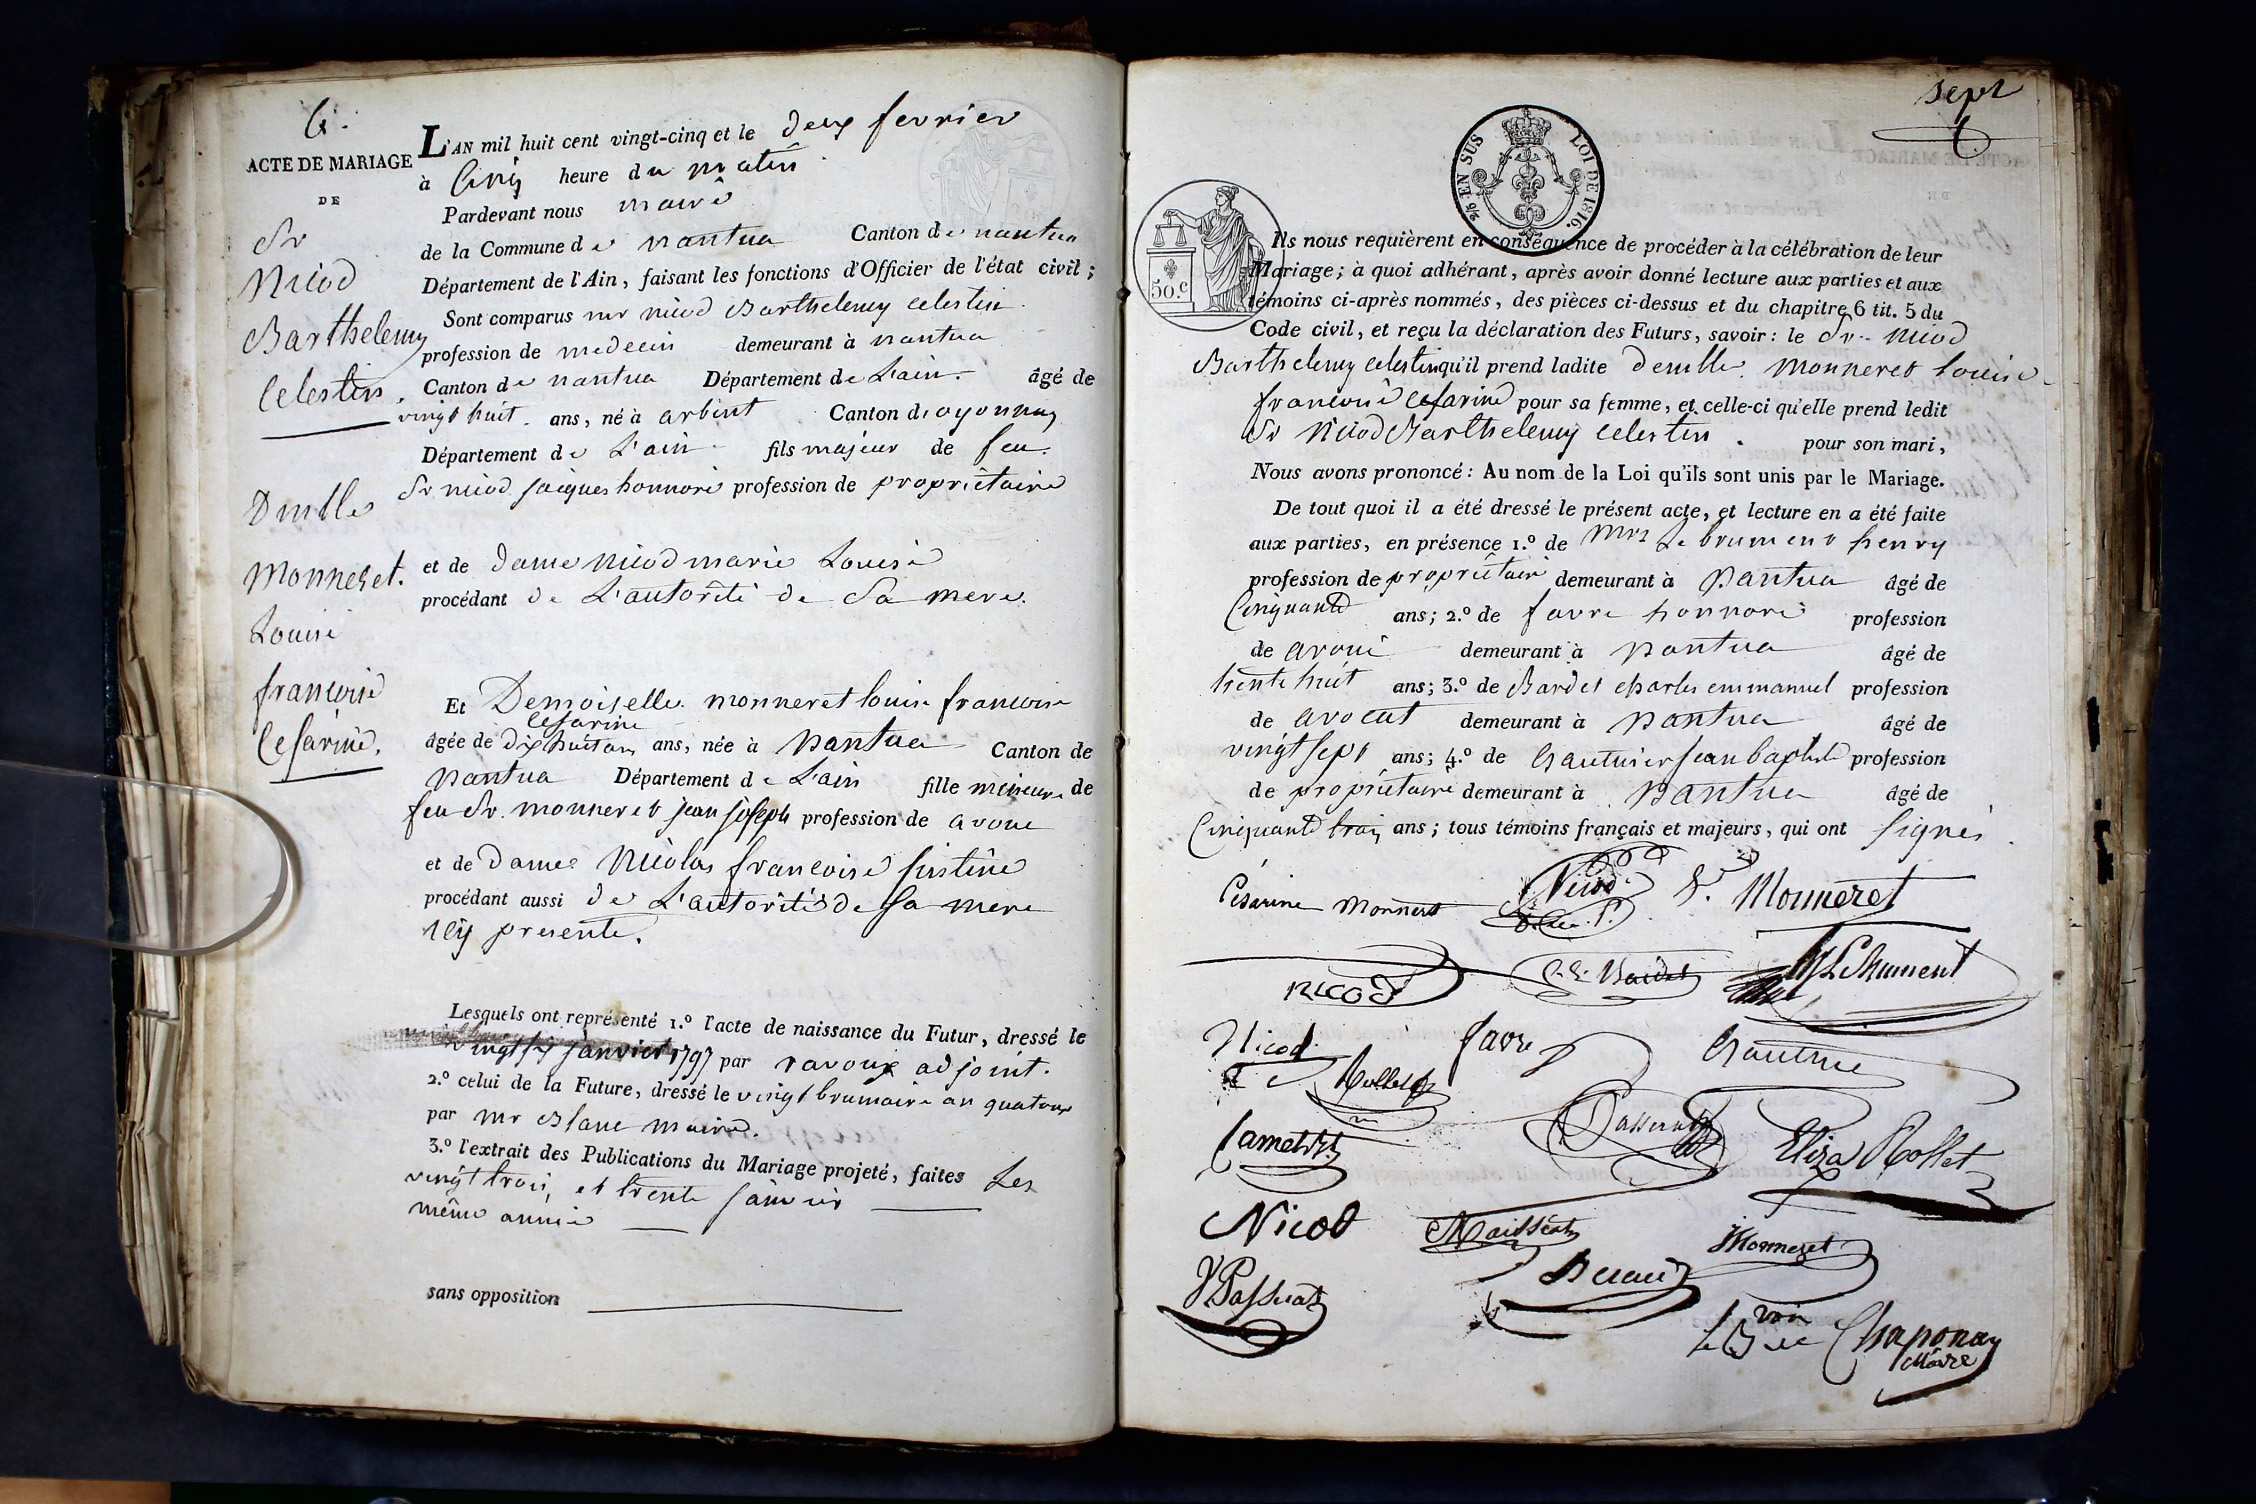 6.
ACTE DE MARIAGE
DE
Sr
Nicod
Barthelemy
Celestin.
Dmlle
Monneret.
Louise
francoise
Cesarine.
L'AN mil huit cent vingt-cinq et le deux fevrier
à Cinq heure du matin
Pardevant nous maire
de la Commune de nantua Canton de nantua
Département de l'Ain, faisant les fonctions d'Officier de l'état civil;
Sont comparus mr nicod Barthelemy celestin
profession de medecin demeurant à nantua
Canton de nantua Département de L'ain. âgé de
vingt huit ans, né à arbent Canton d'oyonnax
Département de L'ain fils majeur de feu
Sr nicod jacques honnoré profession de propriétaire
et de dame nicod marie Louise
procédant de L'autorité de Sa mere.
Et Demoiselle monneret louise francoise
cesarine
âgée de dix huit an ans, née à nantua Canton de
nantua Département de L'ain fille mineure de
feu Sr. monneret jean joseph profession de avoué
et de Dame Nicolas francoise justine
procédant aussi de L'autorité de Sa mere
icy presente.
Lesquels ont représenté 1.º l'acte de naissance du Futur, dressé le
vingt six janvier 1797 par ravoux adjoint.
2.º celui de la Future, dressé le vingt brumaire an quatorze
par mr Blanc maire.
3.º l'extrait des Publications du Mariage projeté, faites Les
vingt trois et trente janvier
même année
sans opposition
sept
2/5 EN SUS LOI DE 1816.
50.c
Ils nous requièrent en conséquence de procéder à la célébration de leur
Mariage; à quoi adhérant, après avoir donné lecture aux parties et aux
témoins ci-après nommés, des pièces ci-dessus et du chapitre 6 tit. 5 du
Code civil, et reçu la déclaration des Futurs, savoir: le Sr. Nicod
Barthelemy celestin qu'il prend ladite demlle. monneret louise
francoise cesarine pour sa femme, et celle-ci qu'elle prend ledit
Sr Nicod Barthelemy celestin. pour son mari,
Nous avons prononcé: Au nom de la Loi qu'ils sont unis par le Mariage.
De tout quoi il a été dressé le présent acte, et lecture en a été faite
aux parties, en présence 1.º de Mrs Le brument henry
profession de propriétaire demeurant à nantua âgé de
Cinquante ans; 2.º de favre honnoré profession
de avoué demeurant à nantua âgé de
trente huit ans; 3.º de Bardet charles emmanuel profession
de avocat demeurant à nantua âgé de
vingt sept ans; 4.º de Gauthier jean baptiste profession
de propriétaire demeurant à nantua âgé de
Cinquante trois ans; tous témoins français et majeurs, qui ont signés.
Césarine Monneret Nicod Monneret
NICOD Bardet Lebrument
Nicod favre
Rollet
Passerat Eliza Rollet
Nicod Maissiat Monneret
Passerat
Le Bon de Chaponay
Maire